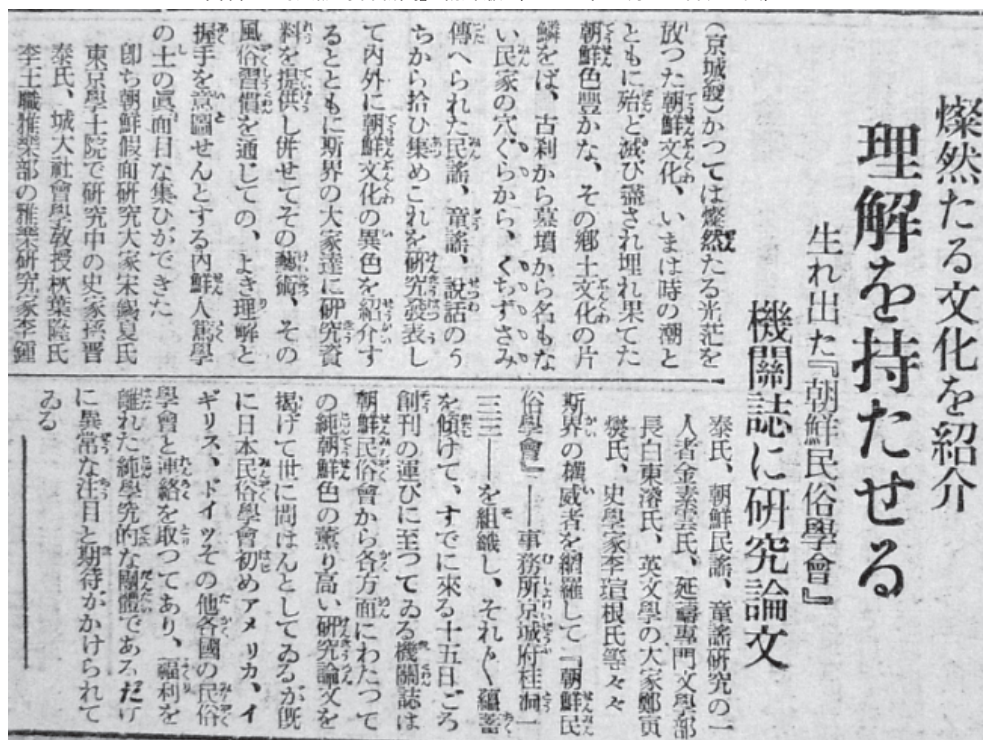 燦然たる文化を紹介
理解を持たせる
生れ出た『朝鮮民俗學會』
機關誌に研究論文
(京城發)かつては燦然たる光茫を
放つた朝鮮文化、いまは時の潮と
ともに殆ど滅び盡され埋れ果てた
朝鮮色豐かな、その鄕土文化の片
鱗をば、古刹から墓墳から名もな
い民家の穴ぐらから、くちずさみ
傳へられた民謠、童謠、說話のう
ちから拾ひ集めこれを研究發表し
て內外に朝鮮文化の異色を紹介す
るとともに斯界の大家達に研究資
料を提供し倂せてその藝術、その
風俗習慣を通じての、よき理解と
握手を意圖せんとする內鮮人篤學
の士の眞面目な集ひができた
卽ち朝鮮假面研究大家宋錫夏氏
東京學士院で研究中の史家孫晋
泰氏、城大社會學敎授秋葉隆氏
李王職雅樂部の雅樂研究家李鍾
泰氏、朝鮮民謠、童謠研究の一
人者金素雲氏、延禧專門文學部
長白東濬氏、英文學の大家鄭寅
燮氏、史學家李瑄根氏等々々
斯界の權威者を網羅して『朝鮮民
俗學會』——事務所京城府桂洞一
三三——を組織し、それ〲蘊蓄
を傾けて、すでに來る十五日ごろ
創刊の運びに至つてゐる機關誌は
朝鮮民俗會から各方面にわたつて
の純朝鮮色の薫り高い研究論文を
揭げて世に問はんとしてゐるが旣
に日本民俗學會初めアメリカ、イ
ギリス、ドイツその他各國の民俗
學會と連絡を取つてあり、福利を
離れた純學究的な團體であるだけ
に異常な注目と期待がかけられて
ゐる